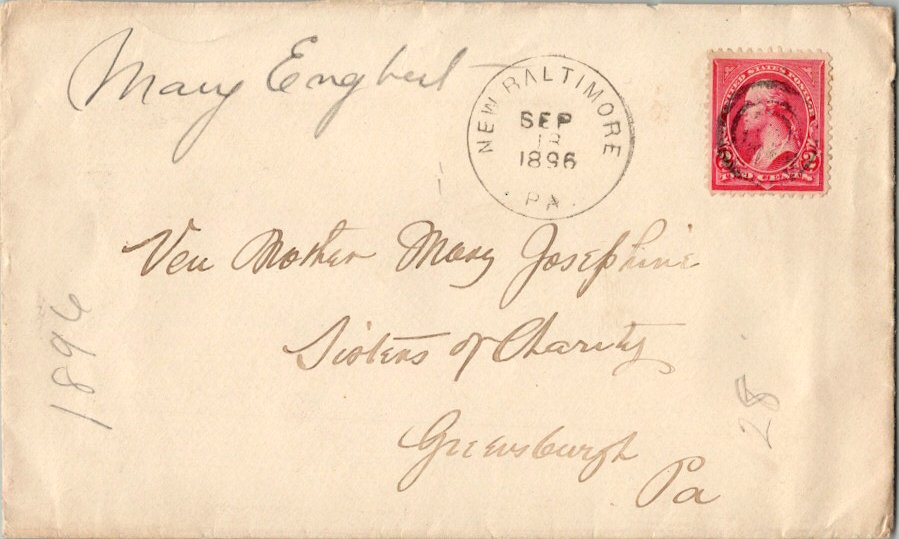 Mary Engbert
NEW BALTIMORE
SEP
1896
PA
UNITED STATES POSTAGE
2 2
TWO CENTS
Ven Mother Mary Josephine
Sisters of Charity
Greensburgh
Pa
1896
28